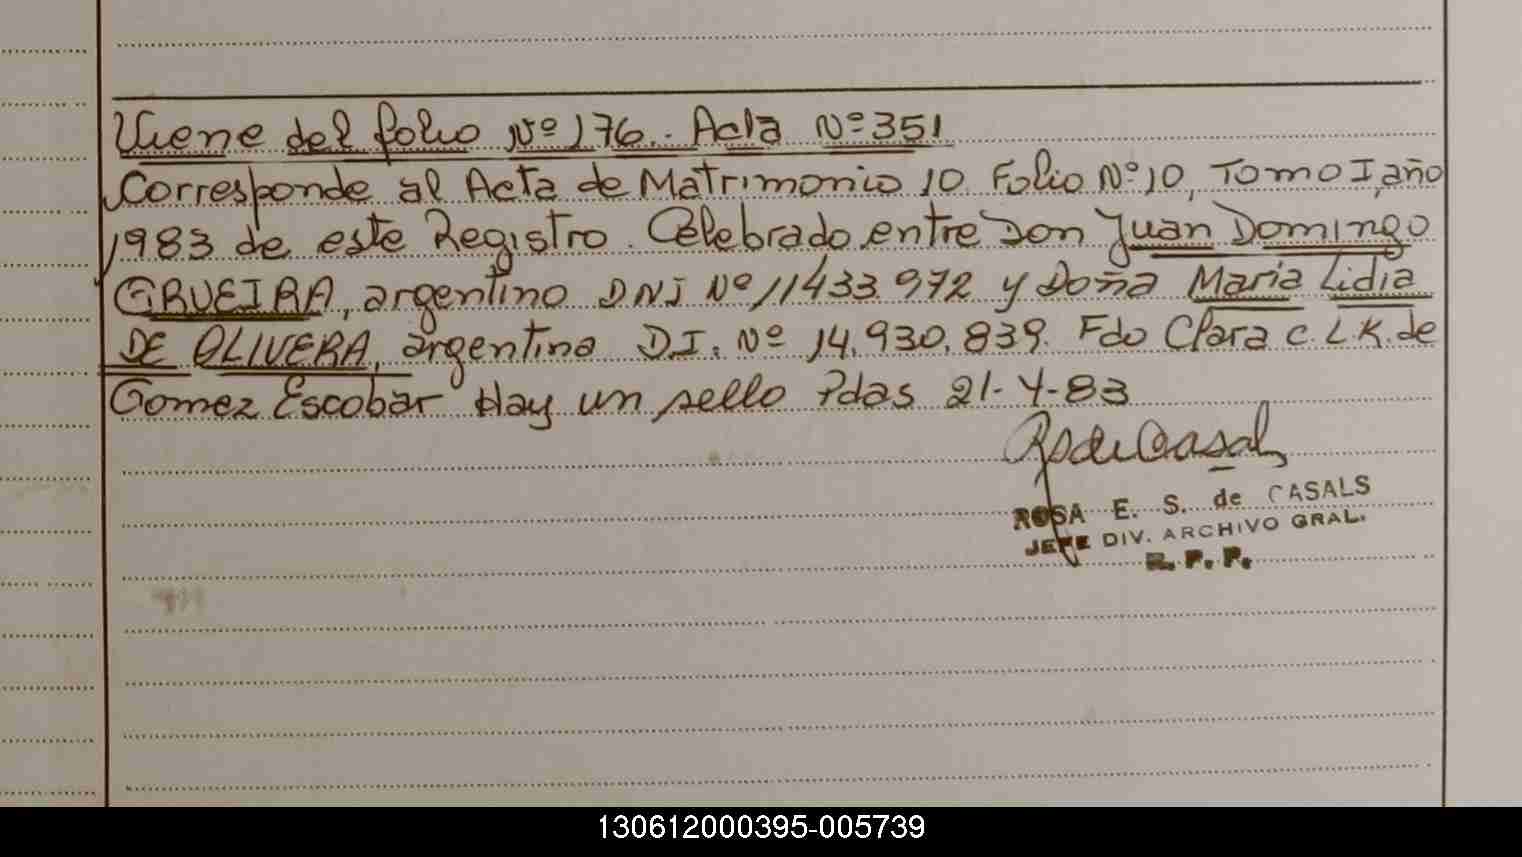 Viene del folio Nº 176.- Acta Nº 351
Corresponde al Acta de Matrimonio 10 Folio Nº 10, Tomo I, año
1983 de este Registro. Celebrado entre Don Juan Domingo
GRUEIRA, argentino DNI Nº 11433.972 y Doña Maria Lidia
DE OLIVERA, argentina D.I. Nº 14.930.839. Fdo Clara C. L. K. de
Gomez Escobar Hay un sello Pdas 21-4-83
ROSA E. S. de CASALS
JEFE DIV. ARCHIVO GRAL.
R. P. P.
130612000395-005739